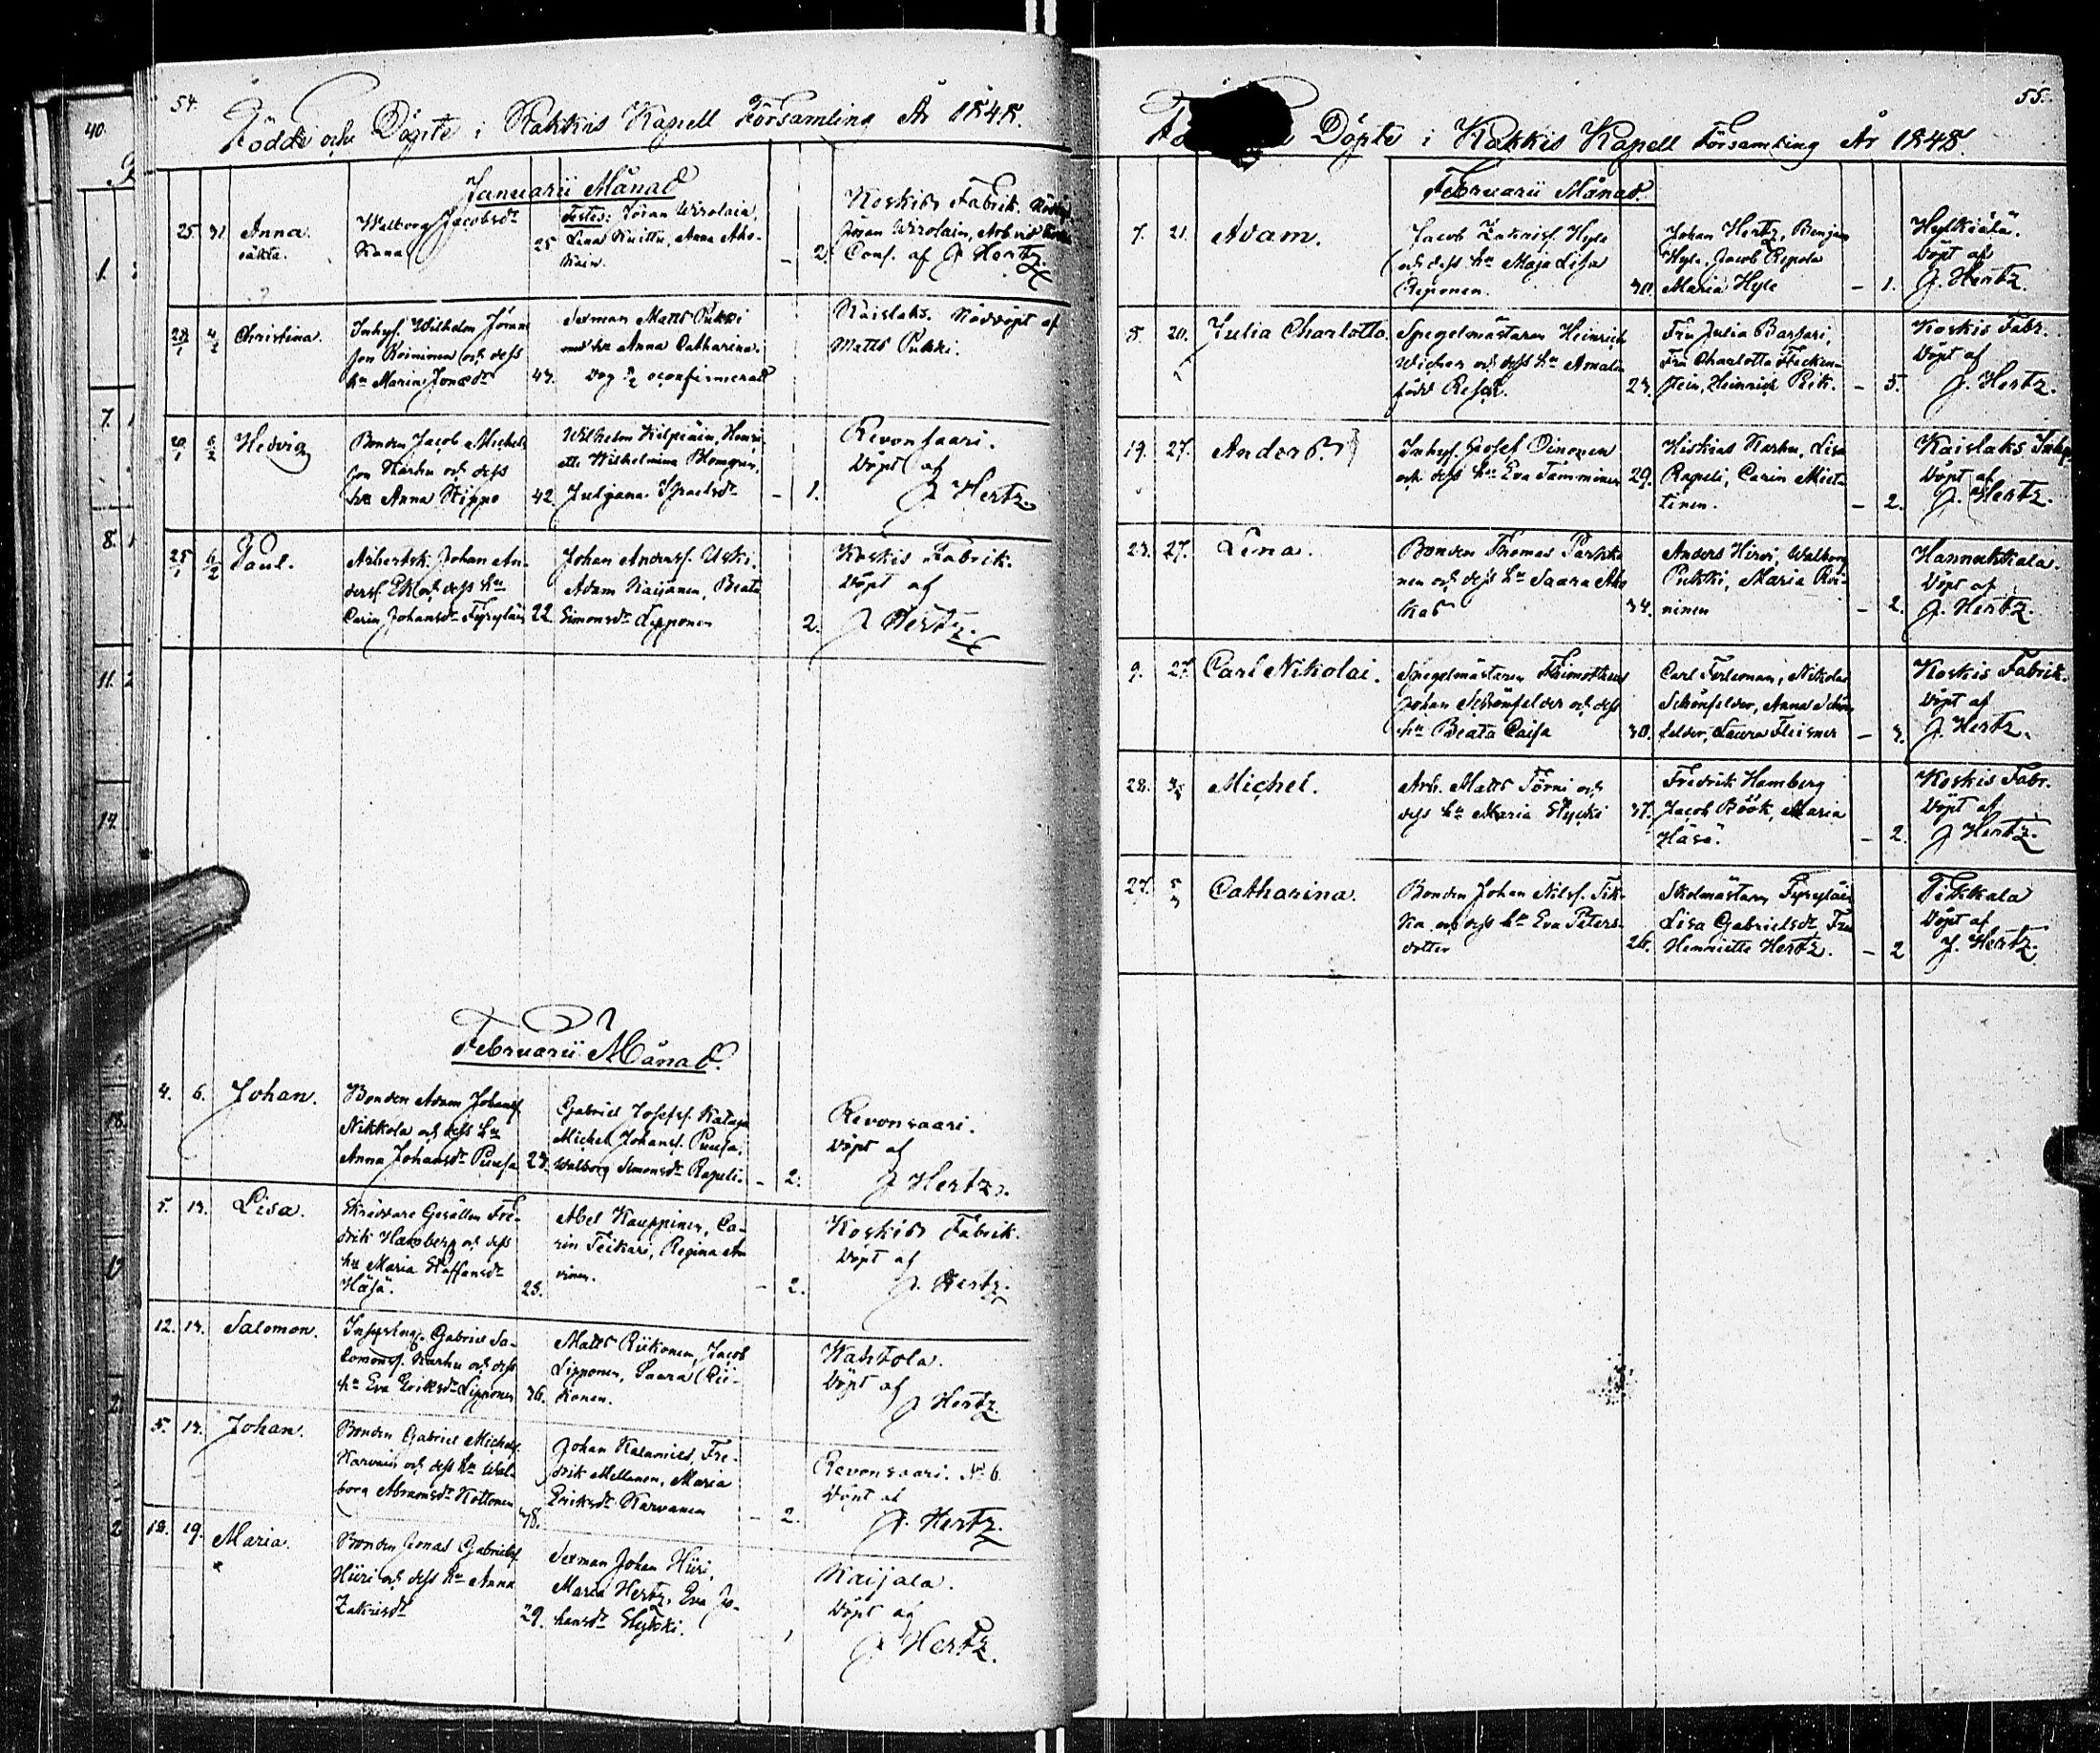 54.
Födde och Döpte i Kakkis Kapell Församling År 1848.
Januarii Månad
25. 31. Anna.
oäkta.
Walborg Jacobsdr
Kana
25
Testes: Jöran Wirolain,
Lena Kuittu, Anna Aho-
kain.
- 2.
Koskis Fabrik.
Jöran Wirolain,
Conf. af J. Hertz.
28/1 4/2 Christina.
Inhys. Wilhelm Jöranss
son Koinimen och dess
hu Maria Jonsdr
43.
Sexman Matts Pukki
med hu Anna Catharina.
confirmerad
Kaislaks. Nöddöpt af
Matts Pukki.
29/1 6/2 Hedvig
Bonden Jacob Michels
son Karhu och dess
hu Anna Kippo
42.
Wilhelm Kilpiäin, Henri-
ette Wilhelmina Blomqvist,
Juljana Israelsdr
- 1.
Revonsaari.
Döpt af
J. Hertz.
25/1 6/2 Paul.
Arbetsk. Johan An-
derss. Ek och dess hu
Carin Johansdr Tyryläin
22.
Johan Anderss. Uski,
Adam Kaijanen, Beata
Simonsdr Lipponen
2.
Koskis Fabrik.
Döpt af
J. Hertz.
Februarii Månad.
4. 6. Johan.
Bonden Adam Johanss
Nikkola och dess hu
Anna Johansdr Puusa
23.
Gabriel Josefss. Kataja
Michel Johanss. Puusa,
Walborg Simonsdr Rapeli.
- 2.
Revonsaari.
Döpt af
J. Hertz.
5. 13. Lisa.
Skräddare Gesällen Fre-
drik Hamberg och dess
hu Maria Staffansdr
Häsä.
25.
Abel Kauppinen, Ca-
rin Teikari, Regina
- 2.
Koskis Fabrik.
Döpt af
J. Hertz.
12. 13. Salomon.
Inhysing. Gabriel Sa-
lomonss. Karhu och dess
hu Eva Eriksdr Lipponen
36.
Matts Riikonen, Jacob
Lipponen, Saara Rii-
konen.
Kahtola.
Döpt af
J. Hertz.
5. 13. Johan.
Bonden Gabriel Michelss.
Karvain och dess hu Wal-
borg Abramsdr Kottonen
38.
Johan Kalamies, Fre-
drik Mellanen, Maria
Eriksdr Karvanen
- 2.
Revonsaari. No 6.
Döpt af
J. Hertz.
18. 19. Maria.
Bonden Jonas Gabrielss
Hiiri och dess hu Anna
Zakrisdr
29.
Sexman Johan Hiiri,
Maria Hertz, Eva Jo-
hansdr Slykki.
1
Kaijala.
Döpt af
J. Hertz.
55.
Döpte i Kakkis Kapell Församling År 1848.
Februarii Månad.
7. 21. Adam.
Jacob Zakriss. Hyle
och dess hu Maja Lisa
Reponen.
30.
Johan Hertz, Benjam
Hyle, Jacob Repola
Maria Hyle
- 1.
Hylkiälä.
Döpt af
J. Hertz.
8. 20. Julia Charlotta.
Spegelmästaren Heinrich
Wicher och dess hu Amalia
född Resch.
23.
Fru Julia Barsari,
Fru Charlotta Flecken-
stein, Heinrich Rik.
- 5.
Koskis Fabr.
Döpt af
J. Hertz.
19. 27. Anders.
Inhys. Josef Oinonen
och dess hu Eva Tamminen
29.
Hiskias Karhu, Lisa
Rapeli, Carin Miet-
tinen.
- 2.
Kaislaks
Döpt af
J. Hertz.
23. 27. Lena.
Bonden Thomas Parkki-
nen och dess hu Saara Aho
kas
34.
Anders Hirvi, Walborg
Pukki, Maria Koi-
ninen
- 2.
Hannukkala.
Döpt af
J. Hertz.
9. 27. Carl Nikolai.
Spegelmästaren Thimotheus
Johan Schönfelder och dess
hu Beata Caisa
30.
Carl Ferleman, Nikolai
Schönfelder, Anna Schön-
felder, Laura Fleisner
- 3.
Koskis Fabrik.
Döpt af
J. Hertz.
28. Michel.
Arb. Matts Törni och
dess hu Maria Slycki
37.
Fredrik Hamberg
Jacob Böök, Maria
Häsä.
- 2.
Koskis Fabr.
Döpt af
J. Hertz.
27. 5/3 Catharina.
Bonden Johan Nilss. Tik-
ka och dess hu Eva Peters-
dotter
26.
Skolmästaren Tyryläin
Lisa Gabrielsdr, Fru
Henriette Hertz.
- 2
Tikkala
Döpt af
J. Hertz.
40.
1.
7.
8.
11.
14.
18.